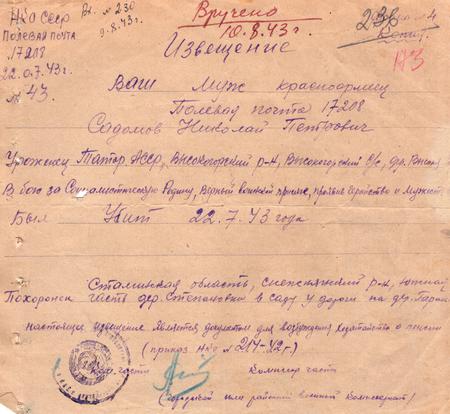 НКО СССР
Полевая почта
17208
22.07.43г.
№ 43
Вх. № 230
9.8.43г.
Вручено
10.8.43г.
238
Извещение
Ваш муж красноармеец
Полевая почта 17208
Садомов Николай Петрович
Уроженец Татар АССР, Высокогорский р-н, Высокогорский с/с, дер. Высок
В бою за Социалистическую Родину, верный воинской присяге, проявив геройство и мужеств
Был Убит 22.7.43 года
Сталинская область, Снежнянский р-н, южной
Похоронен части дер. Степановки в саду у дороги на дер.
настоящее извещение является документом для возбуждения ходатайства о пенсии
(приказ НКО № 214-42 г.)
Ком. части Комиссар части
(